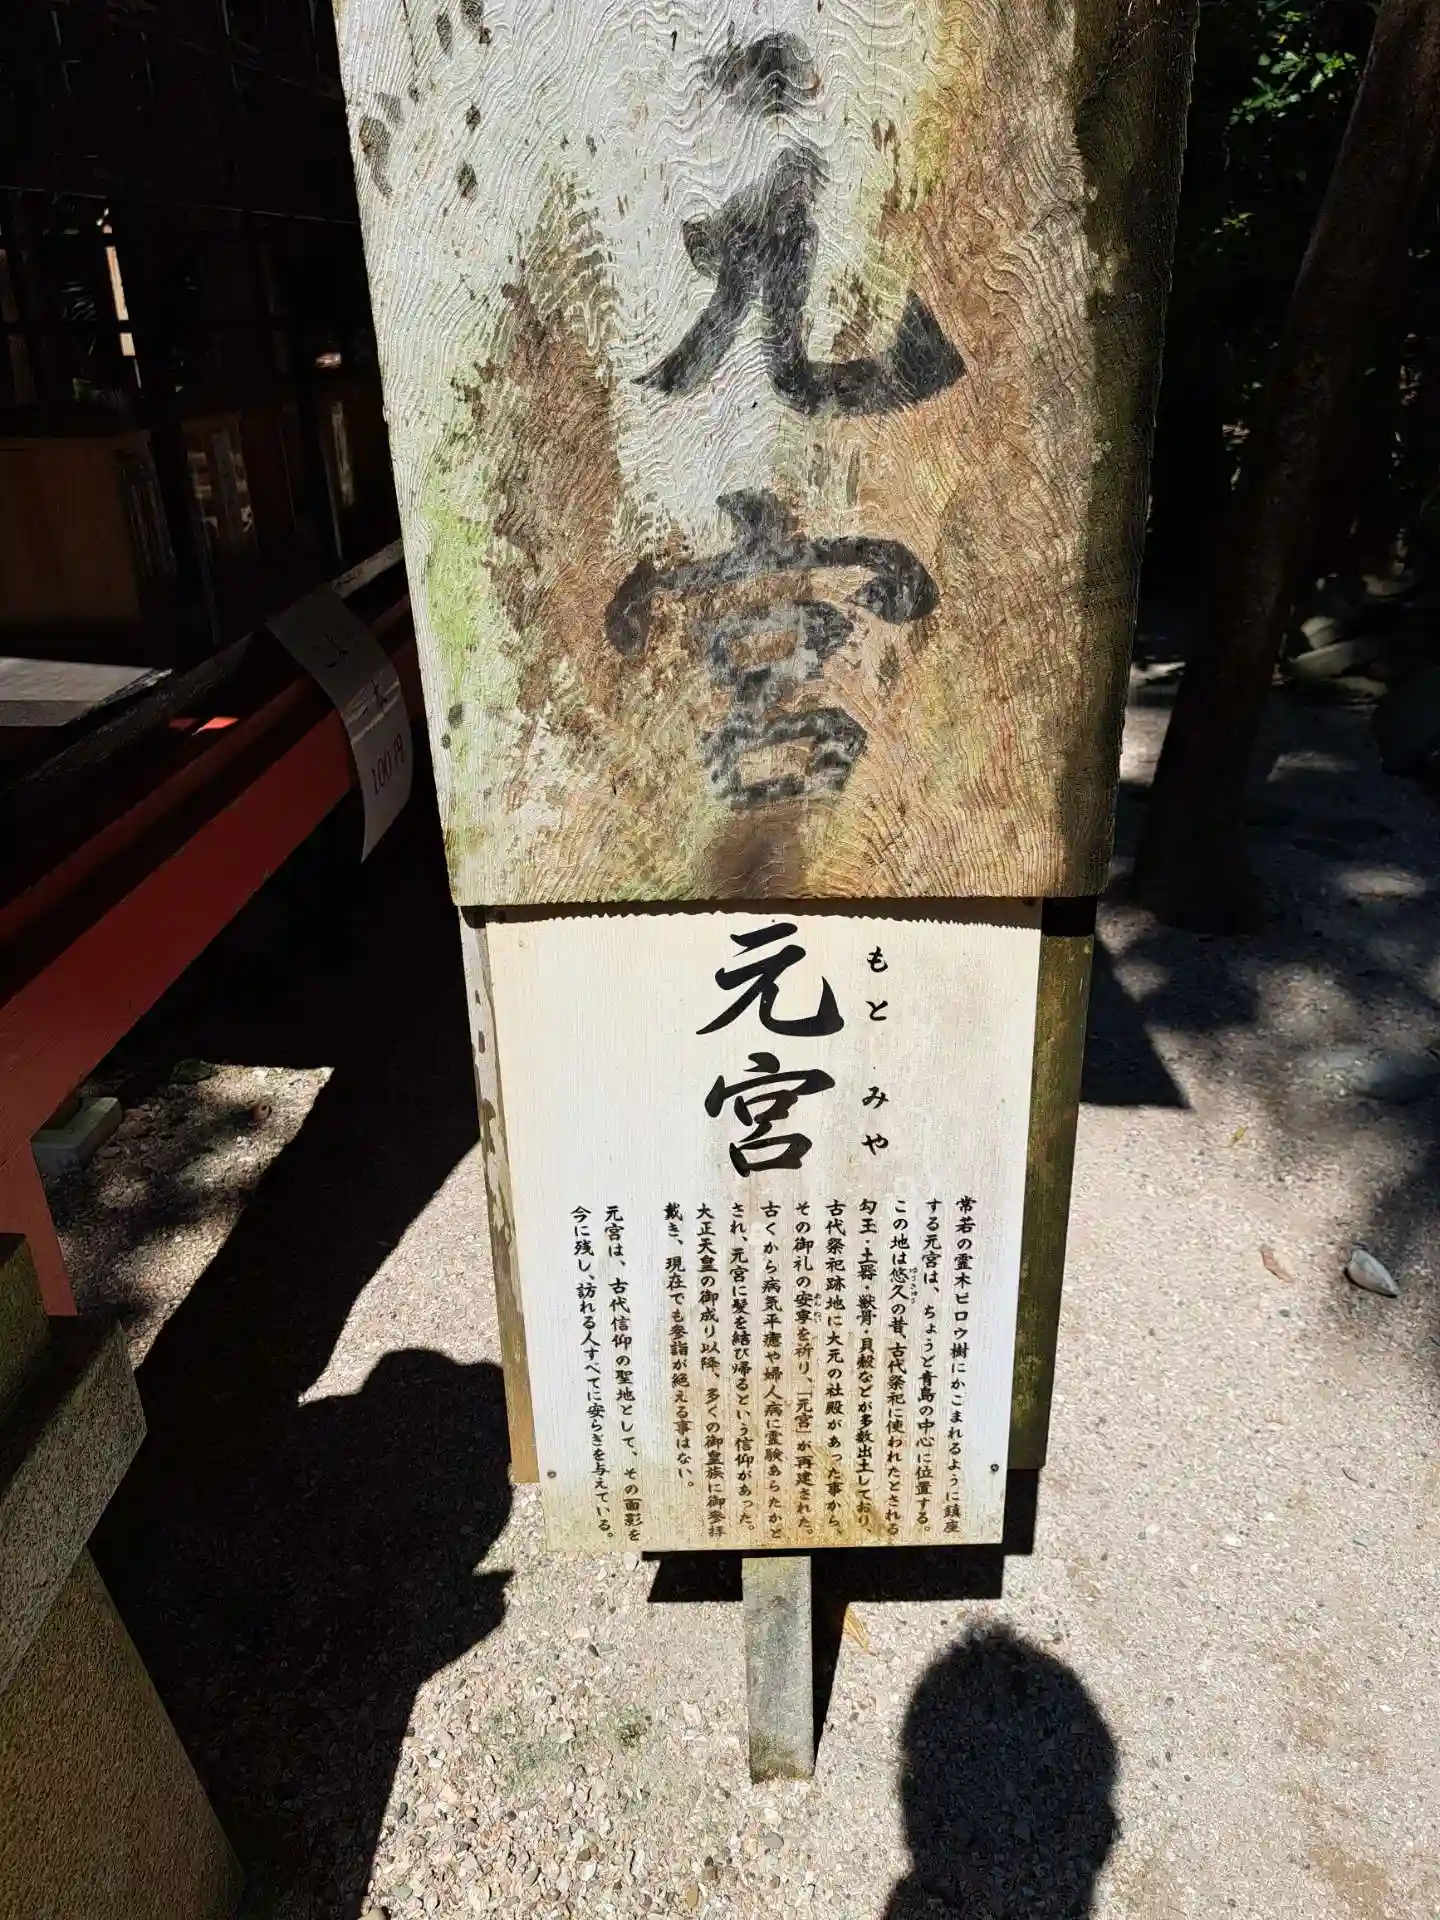 元宮
二本
100円
元宮
もとみや
常若の霊木ビロウ樹にかこまれるように鎮座
する元宮は、ちょうど青島の中心に位置する。
この地は悠久の昔、古代祭祀に使われたとされる
ゆうきゅう
勾玉・土器・獣骨・貝殻などが多数出土しており、
古代祭祀跡地に大元の社殿があった事から、
その御礼の安寧を祈り、「元宮」が再建された。
あんねい
古くから病気平癒や婦人病に霊験あらたかと
され、元宮に髪を結び帰るという信仰があった。
大正天皇の御成り以降、多くの御皇族に御参拝
戴き、現在でも参詣が絶える事はない。
元宮は、古代信仰の聖地として、その面影を
今に残し、訪れる人すべてに安らぎを与えている。